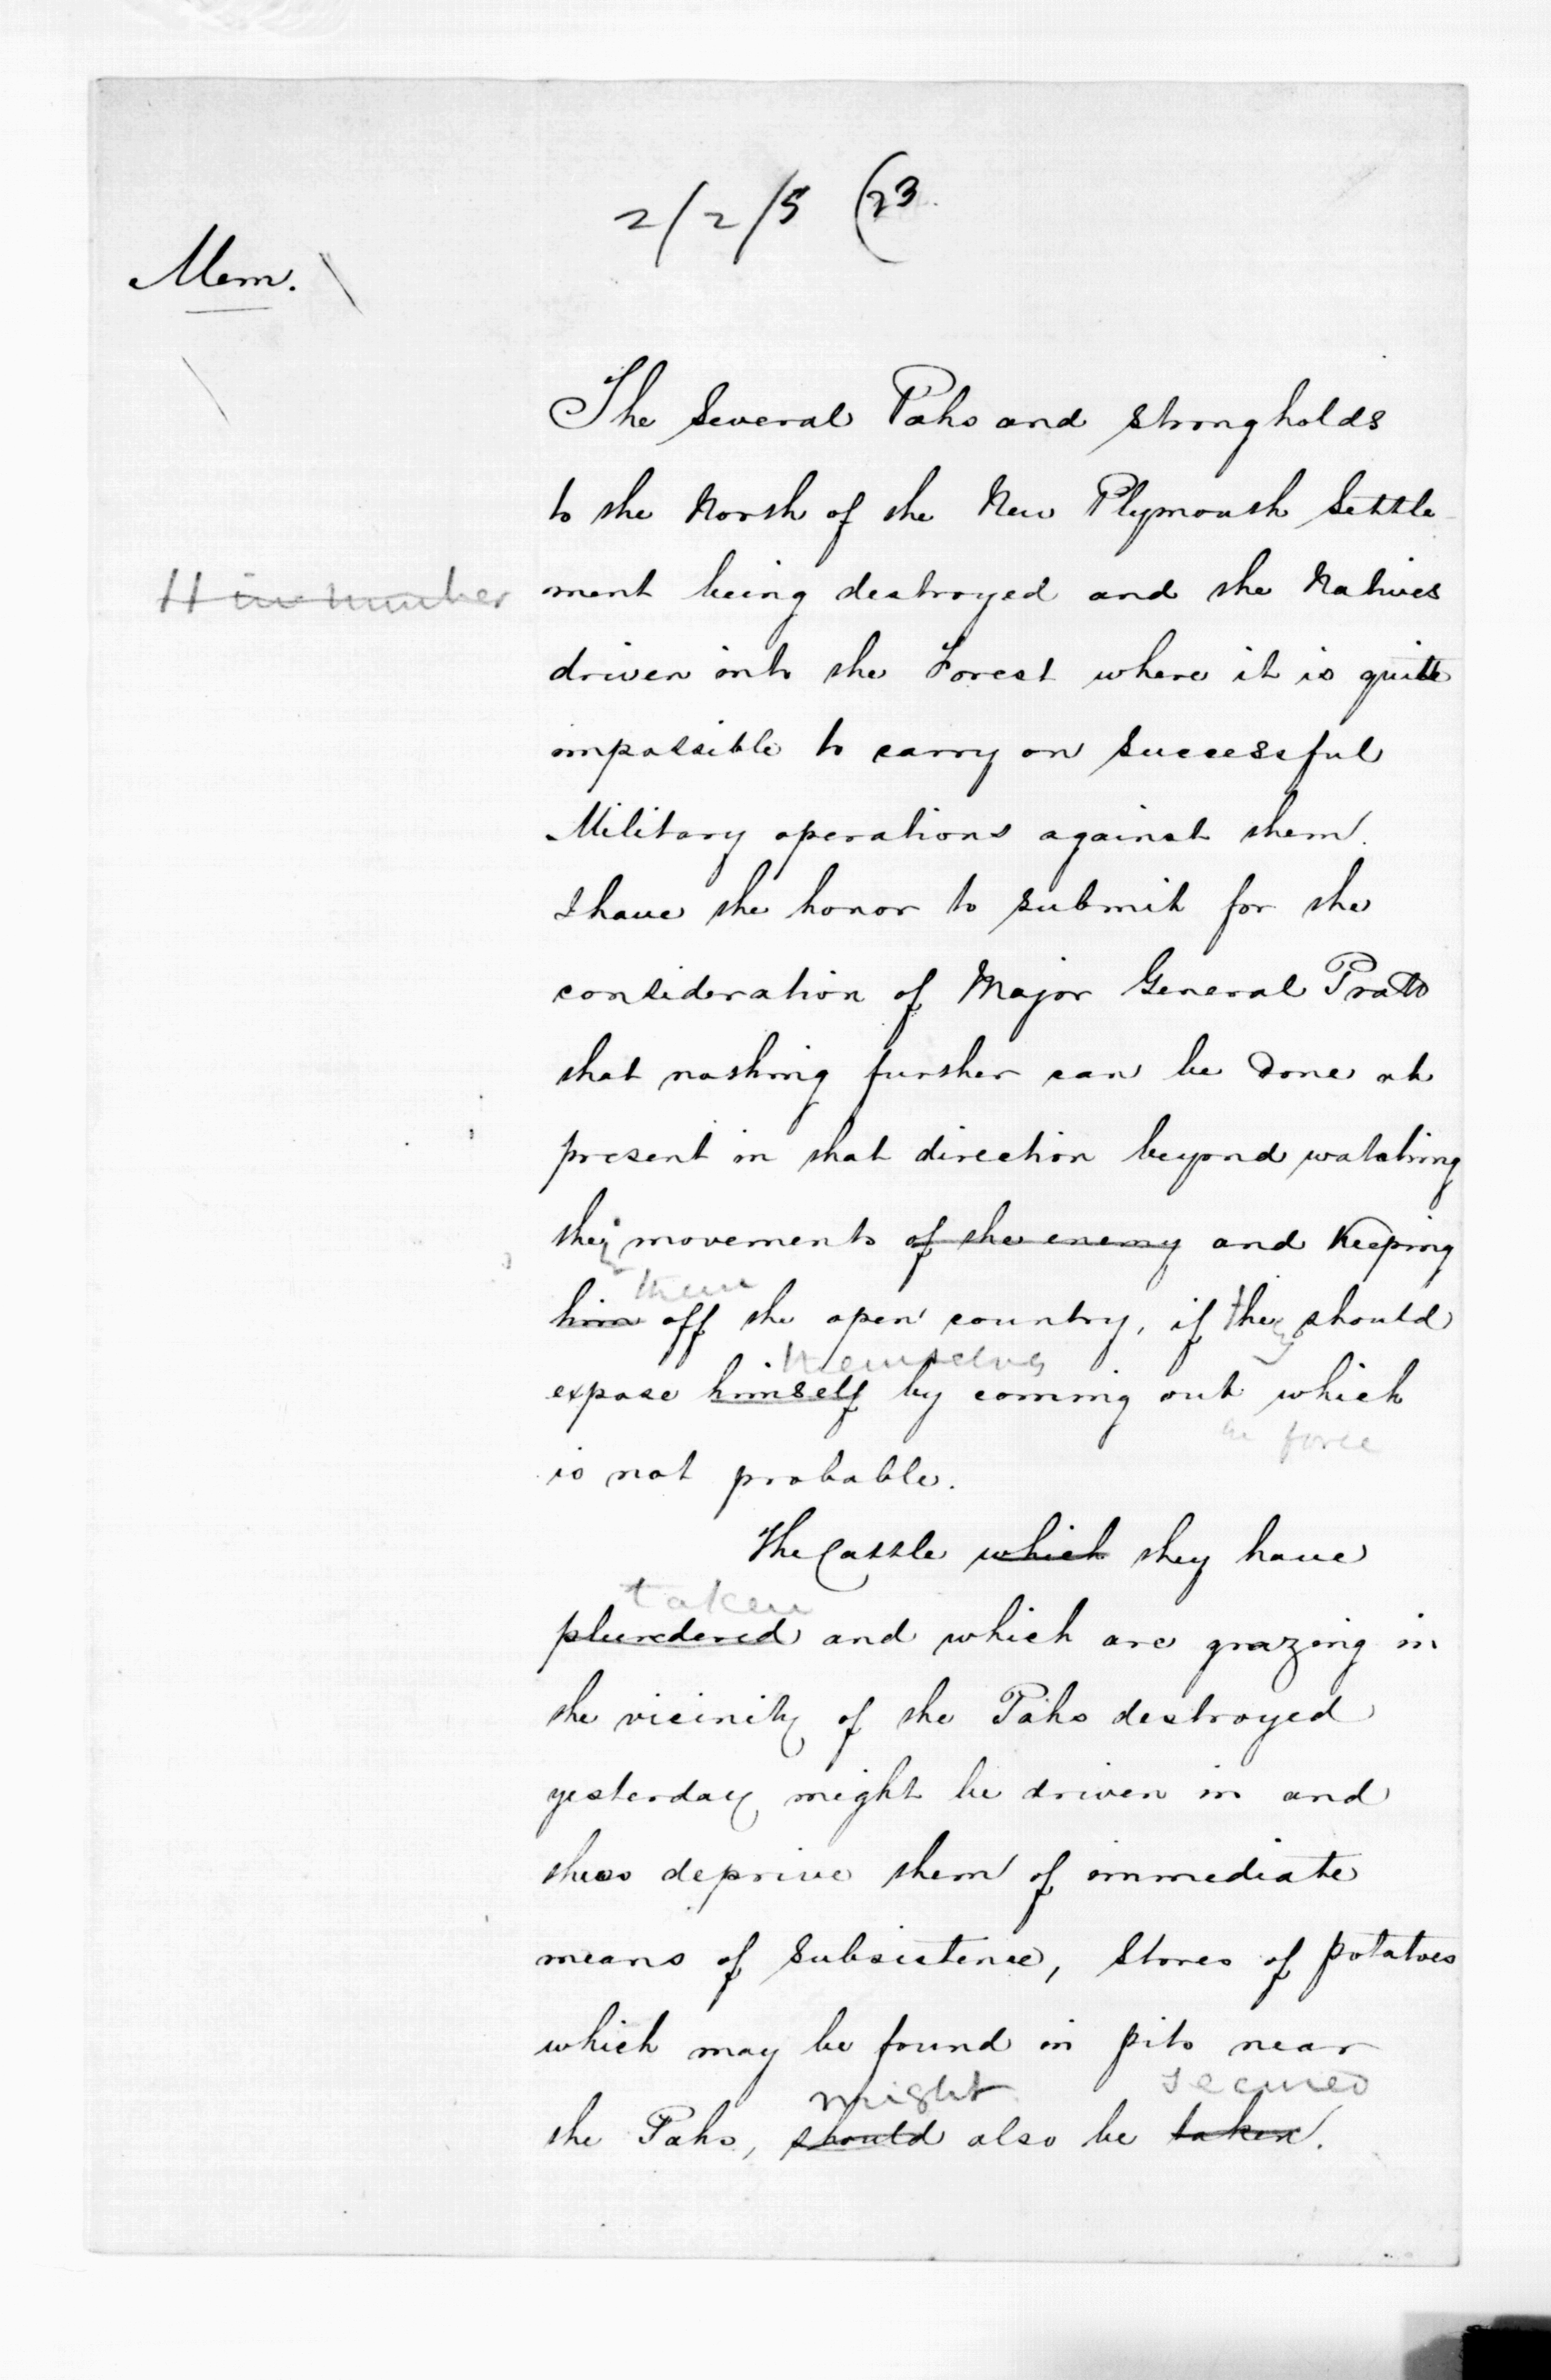 2/2/5 (23.
Mem.
The Several Pahs and strongholds
to the North of the New Plymouth Settle-
11 in number
ment being destroyed and the Natives
driven into the Forest where it is quite
impossible to carry on successful
Military operations against them.
I have the honor to submit for the
consideration of Major General Pratt
that nothing further can be done at
present in that direction beyond watching
their movements of the enemy and Keeping
them
him off the open country, if they should
themselves
expose himself by coming out which
in force
is not probable.
The Cattle which they have
taken
plundered and which are grazing in
the vicinity of the Pahs destroyed
yesterday might be driven in and
thus deprive them of immediate
means of subsistence, Stores of potatoes
which may be found in pits near
might secured
the Pahs, should also be taken.